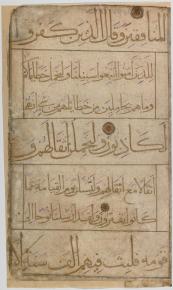 المنافقين وقال الذين كفروا
للذين آمنوا اتبعوا سبيلنا ولنحمل خطاياكم
وما هم بحاملين من خطاياهم من شيء إنهم
لكاذبون وليحملن أثقالهم و
أثقالا مع أثقالهم وليسألن يوم القيامة عما
كانوا يفترون ولقد أرسلنا نوحا إلى
قومه فلبث فيهم ألف سنة إلا